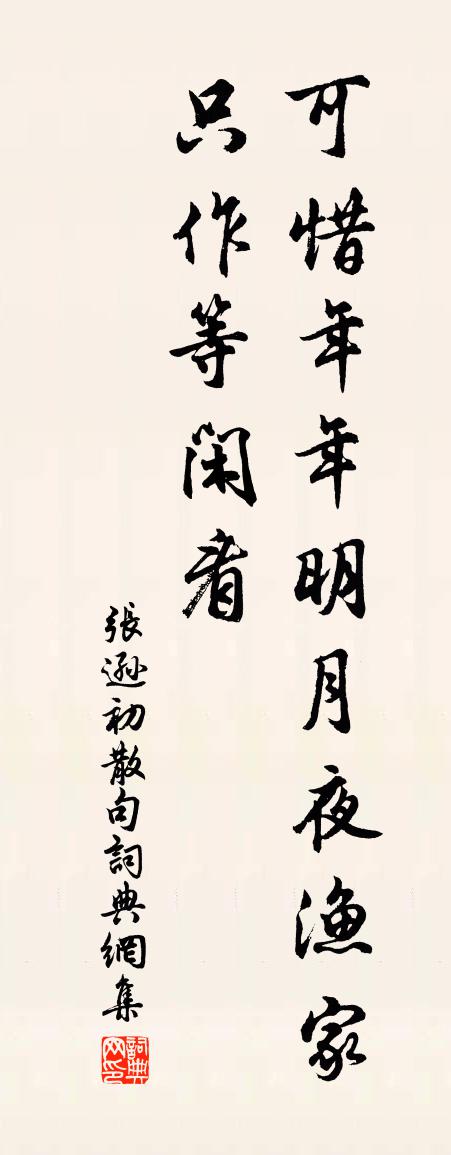 可惜年年明月夜漁家
只作等閑看
張遜初散句詞典網集
詞典
网印